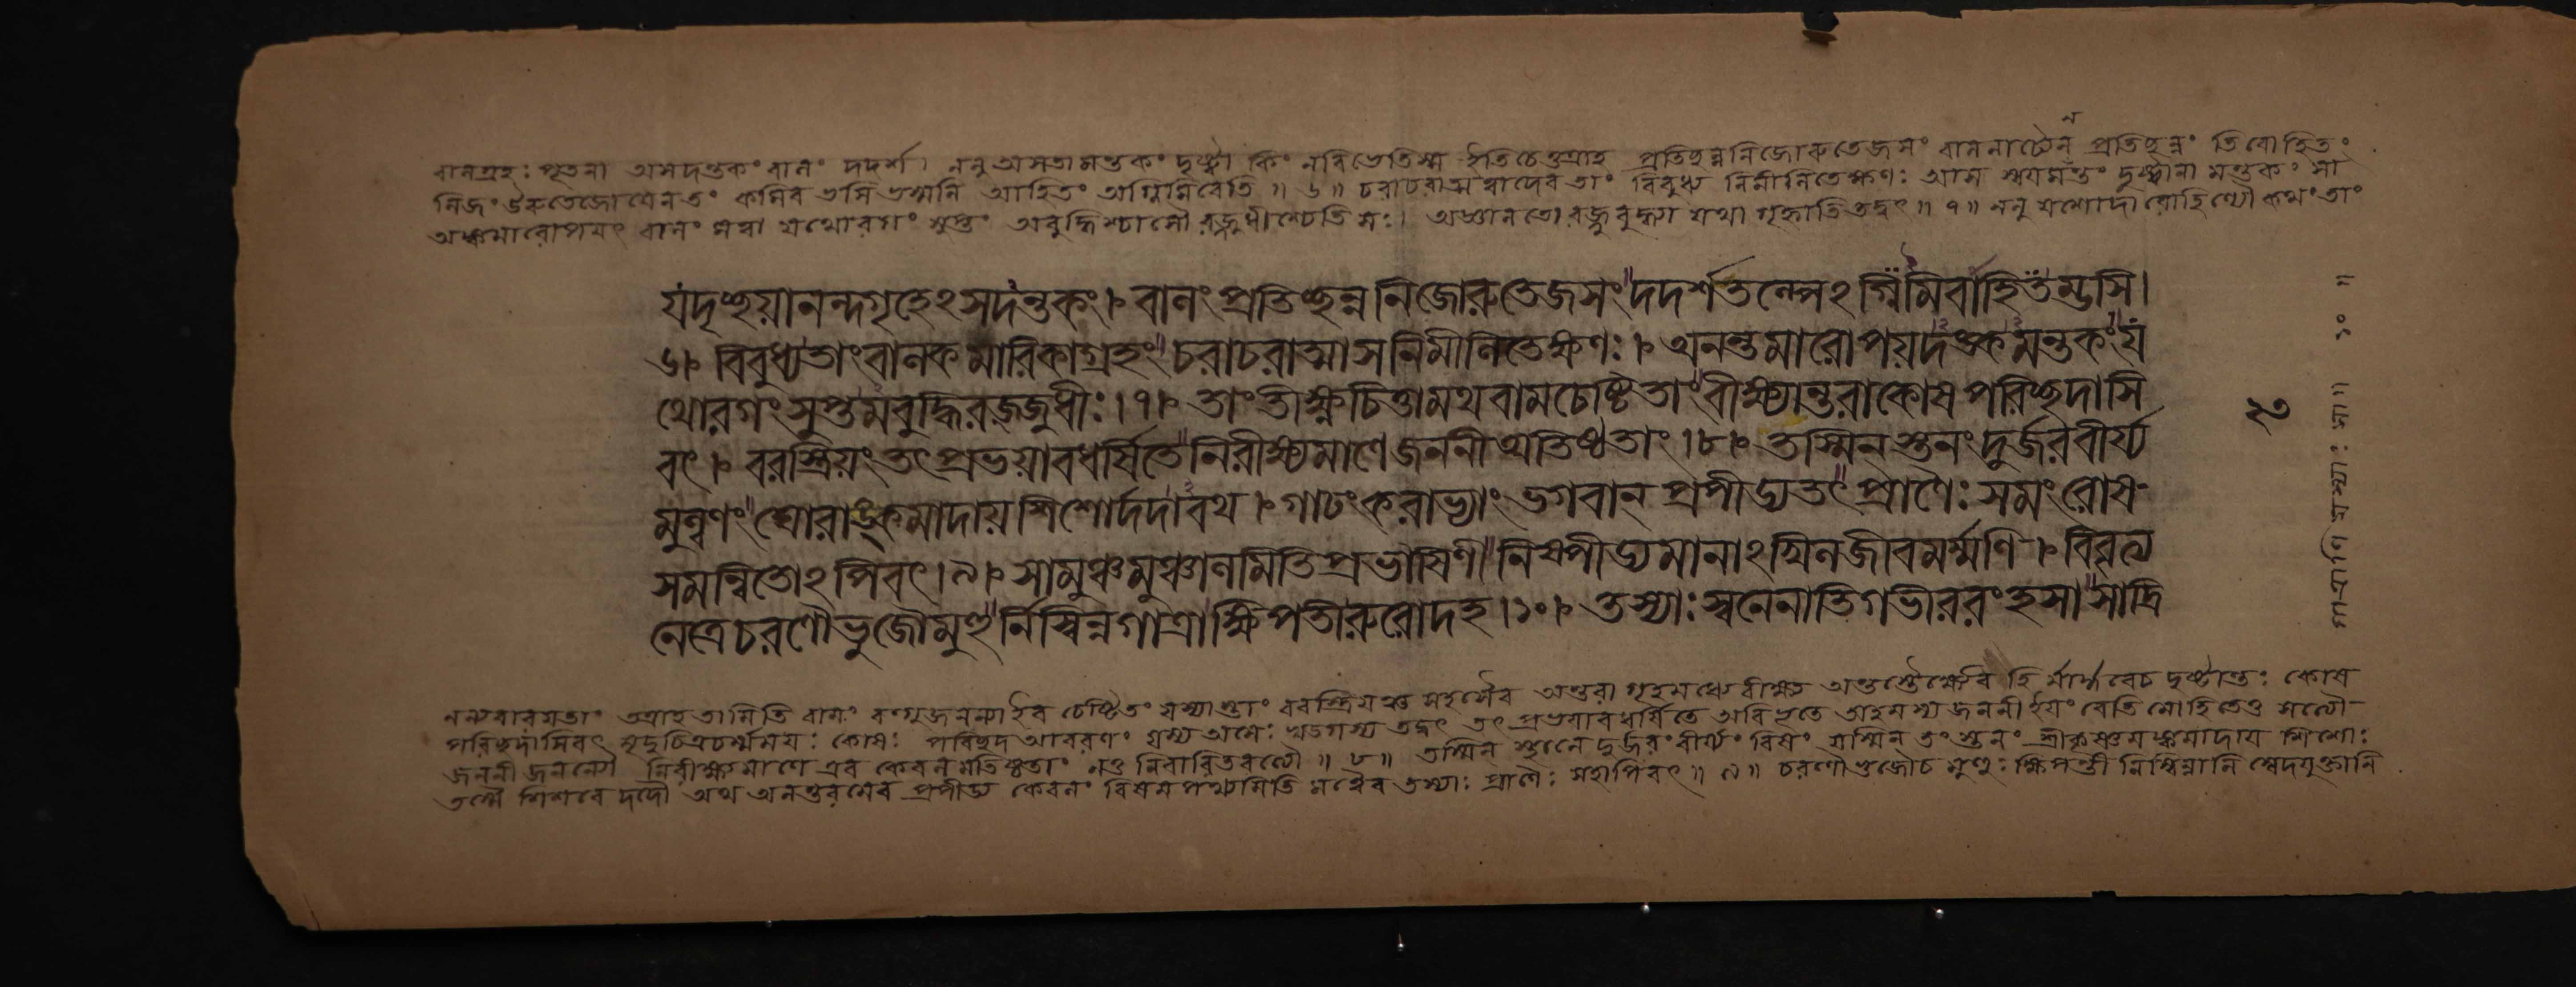 বালগ্রহঃ পূতনা অসদন্তকং বালং দদর্শ। ননু অসতামন্তকং দৃষ্ট্বা কিং নবিভেতিস্ম ইতিচেত্তত্রাহ প্রতিছন্ননিজোরুতেজসং বালনাট্যেন প্রতিছন্নং তিরোহিতং
নিজং উরুতেজোযেনতং কমিব ভসি ভস্মনি আহিতং অগ্নিমিবেতি॥ ৬॥ চরাচরাত্মত্বাদেব তাং বিবুধ্য নিমীলিতেক্ষণঃ আস স্বযমন্তং দুষ্টানা মন্তকং সা
অঙ্কমারোপযৎ বালং যথোরগং সুপ্তং অবুদ্ধিশ্চাসৌ রজ্জুধীশ্চেতি সঃ। অজ্ঞানতো রজ্জুবুদ্ধ্যা যথা গৃহ্ণাতি তদ্বৎ॥ ৭॥ ননু যশোদা রোহিণ্যৌ কথং তাং
যদৃচ্ছয়ানন্দগৃহেঽসদন্তকং। বালং প্রতিচ্ছন্ন নিজোরুতেজসং দদর্শতল্পেঽগ্নিমিবাহিতম্ভসি।
৬। বিবুধ্যতাংবালকমারিকাগ্রহং চরাচরাত্মাসনিমীলিতেক্ষণঃ। অনন্তমারোপয়দঙ্কমন্তকং য
থোরগং সুপ্তমবুদ্ধিরজ্জুধীঃ।৭। তাংতীক্ষ্ণচিত্তামথবামচেষ্টিতাং বীক্ষ্যান্তরাকোষপরিচ্ছদাসি
বৎ। বরস্ত্রিয়ং তৎপ্রভয়াবধর্ষিতে নিরীক্ষ্যমাণেজননীঅতিষ্ঠতাং।৮। তস্মিন্ স্তনং দুর্জরবীর্য্য
মুল্বণং ঘোরাঙ্কমাদায়শিশোর্দদাবথ। গাঢ়ংকরাভ্যাং ভগবান্ প্রপীড্যতৎ প্রাণৈঃ সমং রোষ-
সমন্বিতোঽপিবৎ।৯। সামুঞ্চমুঞ্চালমিতিপ্রভাষিণী নিষ্পীড্যমানাঽখিলজীবমর্ম্মণি। বিবৃত্য
নেত্রেচরণৌভুজৌমুহুর্নিস্বিন্নগাত্রাক্ষিপতীরুরোদহ।১০। তস্যাঃ স্বনেনাতিগভীররংহসা সাদ্রি
২৩
অন্তরা গৃহমধ্যে বীক্ষ্য দৃষ্টান্তঃ কোষ
পরিচ্ছদাসিবৎ মৃদুচিত্রচর্ম্মময়ঃ কোষঃ পরিছদ আবরণং যস্য অসেঃ খড্গস্য তদ্বৎ তৎ প্রভয়াবধর্ষিতে অভিভূতে জননী ইয়ং বেতি মোহিতেচ সত্যৌ-
জননী জনন্যৌ নিরীক্ষ্যমাণে এব কেবলমতিষ্ঠতাং নতু নিবারিতবত্যৌ॥ ৮॥ তস্মিন্ স্থানে দুর্জরং বীর্য্যং বিষং যস্মিন্ তং স্তনং শ্রীকৃষ্ণমঙ্কমাদায় শিশোঃ
তস্মৈ শিশবে দদৌ অথ অনন্তরমেব প্রপীড্য কেবলং বিষমপথ্যমিতি মত্বৈব তস্যাঃ প্রাণৈঃ সহাপিবৎ॥ ৯॥ চরণৌভুজৌচ মুহুঃ ক্ষিপন্তী নিস্বিন্নানি স্বেদযুক্তানি